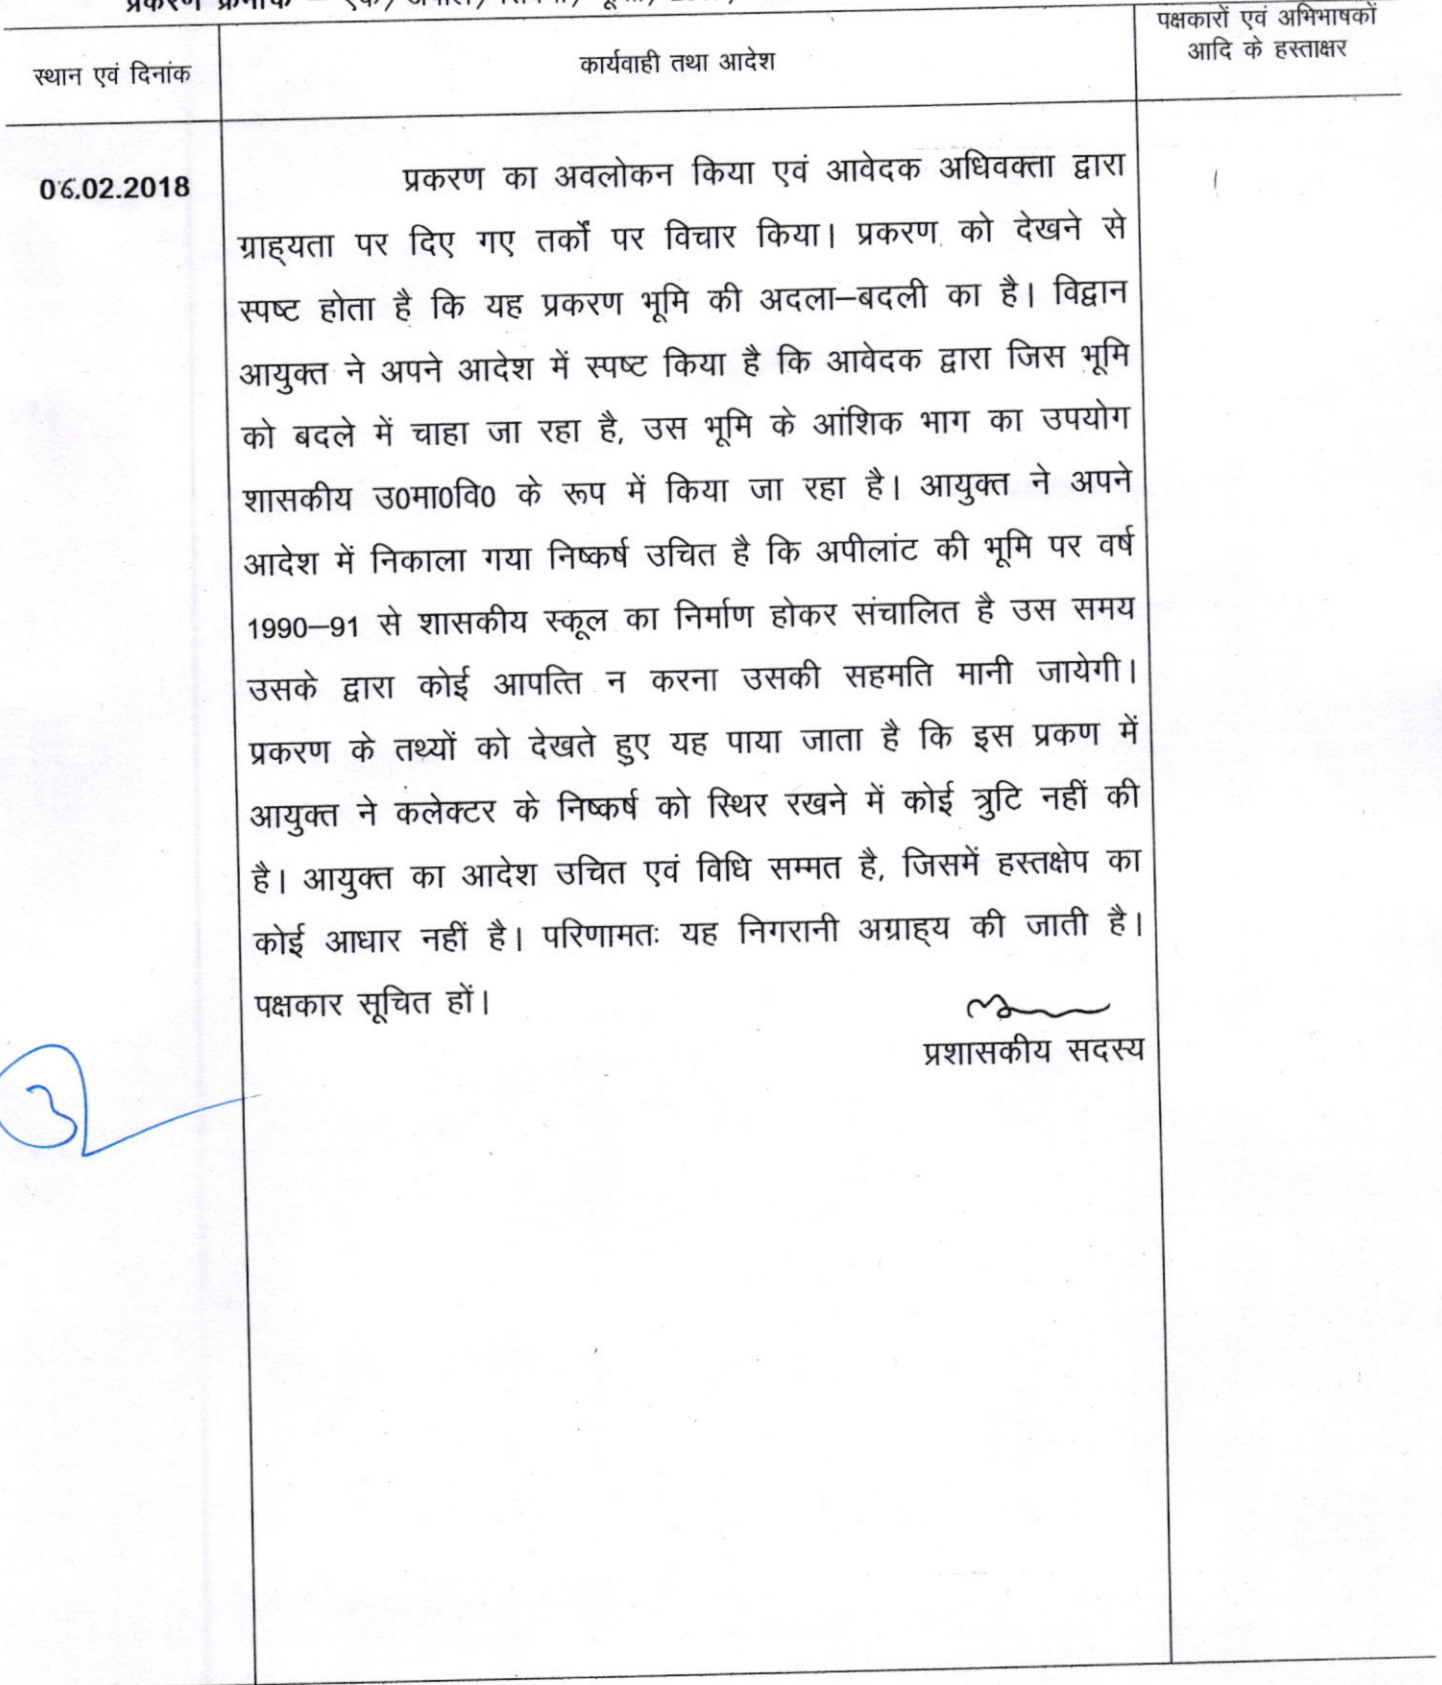 प्रकरण क्रमांक –
पक्षकारों एवं अभिभाषकों
स्थान एवं दिनांक
कार्यवाही तथा आदेश
आदि के हस्ताक्षर
06.02.2018
प्रकरण का अवलोकन किया एवं आवेदक अधिवक्ता द्वारा
ग्राह्यता पर दिए गए तर्कों पर विचार किया। प्रकरण को देखने से
स्पष्ट होता है कि यह प्रकरण भूमि की अदला–बदली का है। विद्वान
आयुक्त ने अपने आदेश में स्पष्ट किया है कि आवेदक द्वारा जिस भूमि
को बदले में चाहा जा रहा है, उस भूमि के आंशिक भाग का उपयोग
शासकीय उ0मा0वि0 के रूप में किया जा रहा है। आयुक्त ने अपने
आदेश में निकाला गया निष्कर्ष उचित है कि अपीलांट की भूमि पर वर्ष
1990–91 से शासकीय स्कूल का निर्माण होकर संचालित है उस समय
उसके द्वारा कोई आपत्ति न करना उसकी सहमति मानी जायेगी।
प्रकरण के तथ्यों को देखते हुए यह पाया जाता है कि इस प्रकण में
आयुक्त ने कलेक्टर के निष्कर्ष को स्थिर रखने में कोई त्रुटि नहीं की
है। आयुक्त का आदेश उचित एवं विधि सम्मत है, जिसमें हस्तक्षेप का
कोई आधार नहीं है। परिणामतः यह निगरानी अग्राह्य की जाती है।
पक्षकार सूचित हों।
प्रशासकीय सदस्य